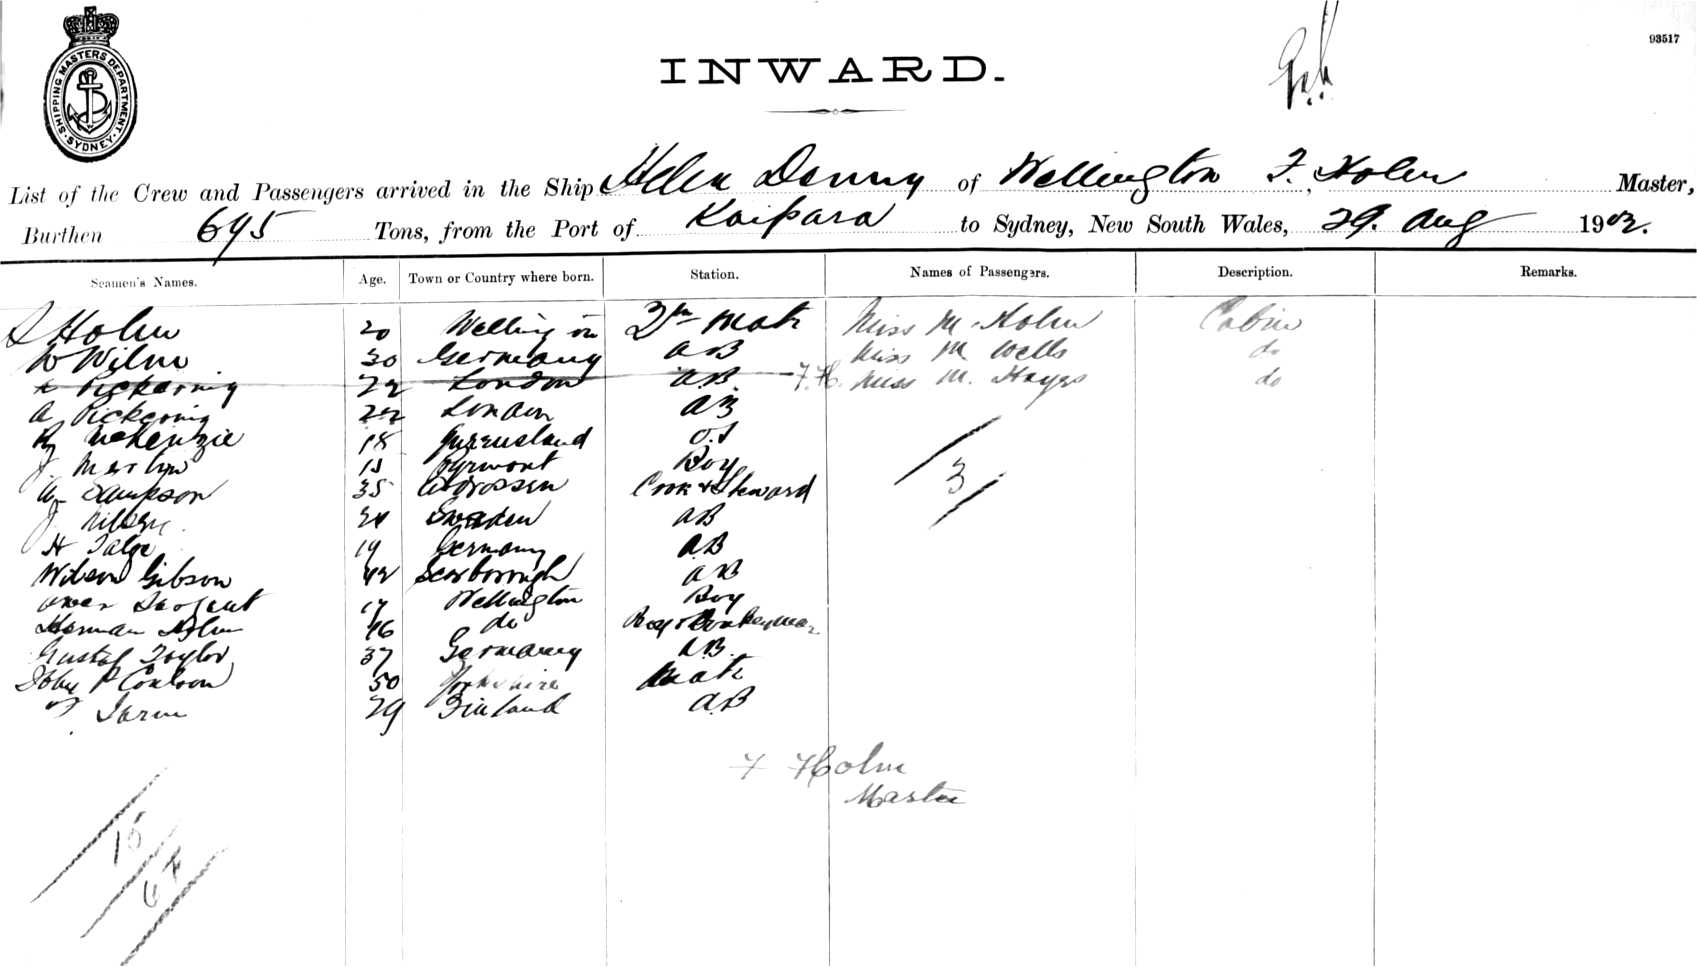 SHIPPING MASTERS DEPARTMENT. SYDNEY
93517
INWARD.
List of the Crew and Passengers arrived in the Ship Helen Denny of Wellington, F. Holm Master,
Burthen 695 Tons, from the Port of Kaipara to Sydney, New South Wales, 29. Aug 1902.
Seamen's Names. Age. Town or Country where born. Station. Names of Passengers. Description. Remarks.
S Holm 20 Wellington 2nd Mate Miss M. Holm Cabin
W Wilm 30 Germany AB Miss M Wells do
Pickering 22 London AB F.H. Miss M. Hayes do
A Pickering 22 London AB
McKenzie 18 Queensland O.S
J. 15 Pyrmont Boy
A Sampson 35 Ardrossen Cook & Steward
3
J. Nilsen Sweden AB
H 19 Germany AB
Wilson Gibson 42 Scarborough AB
Owen Sargent 17 Wellington Boy
Herman Holm 16 do Boy & Donkeyman
Gustaf Taylor 37 Germany AB.
P Coulson 50 Yorkshire Mate
29 Finland AB
F Holm
Master
15